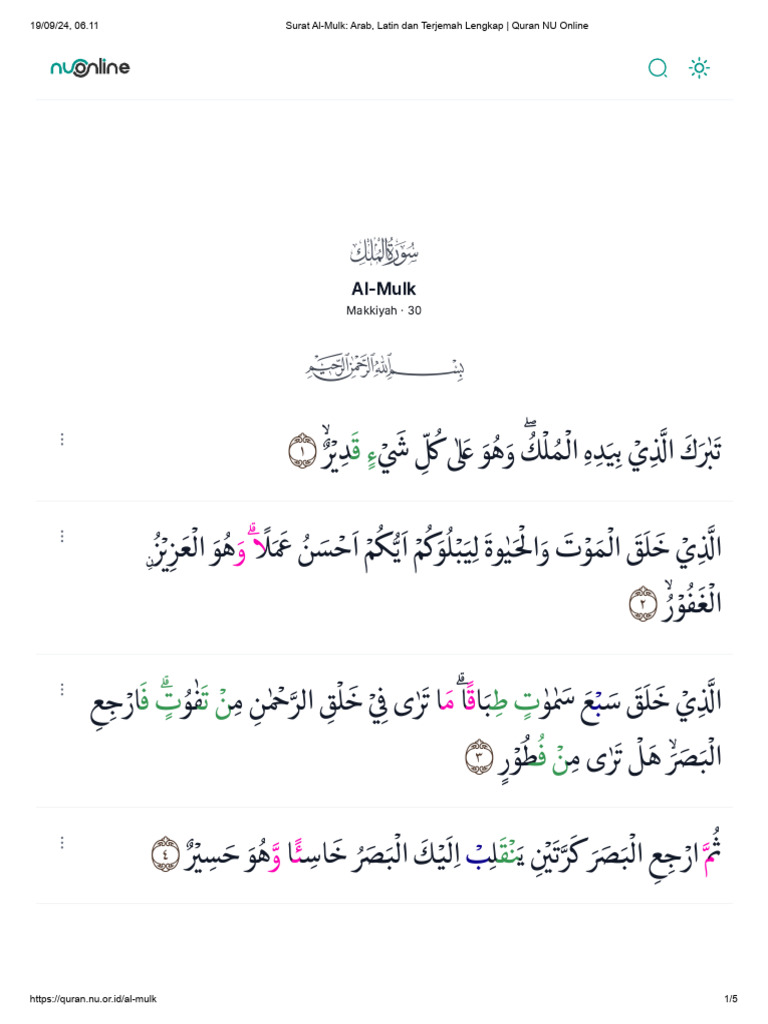 19/09/24, 06.11 Surat Al-Mulk: Arab, Latin dan Terjemah Lengkap | Quran NU Online
nuonline
سُوْرَةُ الْمُلْكِ
Al-Mulk
Makkiyah · 30
بِسْمِ اللّٰهِ الرَّحْمٰنِ الرَّحِيْمِ
تَبٰرَكَ الَّذِيْ بِيَدِهِ الْمُلْكُۖ وَهُوَ عَلٰى كُلِّ شَيْءٍ قَدِيْرٌۙ ١
الَّذِيْ خَلَقَ الْمَوْتَ وَالْحَيٰوةَ لِيَبْلُوَكُمْ اَيُّكُمْ اَحْسَنُ عَمَلًاۗ وَهُوَ الْعَزِيْزُۨ
الْغَفُوْرُۙ ٢
الَّذِيْ خَلَقَ سَبْعَ سَمٰوٰتٍ طِبَاقًاۗ مَا تَرٰى فِيْ خَلْقِ الرَّحْمٰنِ مِنْ تَفٰوُتٍۗ فَارْجِعِ
الْبَصَرَۙ هَلْ تَرٰى مِنْ فُطُوْرٍ ٣
ثُمَّ ارْجِعِ الْبَصَرَ كَرَّتَيْنِ يَنْقَلِبْ اِلَيْكَ الْبَصَرُ خَاسِئًا وَّهُوَ حَسِيْرٌ ٤
https://quran.nu.or.id/al-mulk 1/5